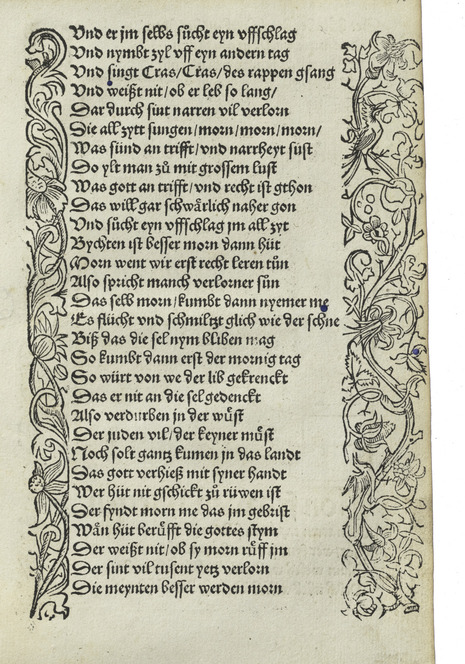 Vnd er jm selbs sůcht eyn vffschlag
Vnd nymbt zyl vff eyn andern tag
Vnd singt Cras/Cras/des rappen gsang
Vnd weißt nit/ob er leb so lang/
Dar durch sint narren vil verlorn
Die all zytt sungen/morn/morn/morn/
Was sünd an trifft/vnd narrheyt sust
Do ylt man zů mit grossem lust
Was gott an trifft/vnd recht ist gthon
Das will gar schwärlich naher gon
Vnd sůcht eyn vffschlag jm all zyt
Bychten ist besser morn dann hüt
Morn went wir erst recht leren tůn
Also spricht manch verlorner sůn
Das selb morn/kumbt dann nyemer me
Es flücht vnd schmiltzt glich wie der schne
Biß das die sel nym bliben mag
So kumbt dann erst der mornig tag
So würt von we der lib gekrenckt
Das er nit an die sel gedenckt
Also verdurben jn der wůst
Der juden vil/der keyner můst
Noch solt gantz kumen jn das landt
Das gott verhieß mit syner handt
Wer hüt nit gschickt zů rüwen ist
Der fyndt morn me das jm gebrist
Wän hüt berůfft die gottes stym
Der weißt nit/ob sy morn růff jm
Der sint vil tusent yetz verlorn
Die meynten besser werden morn